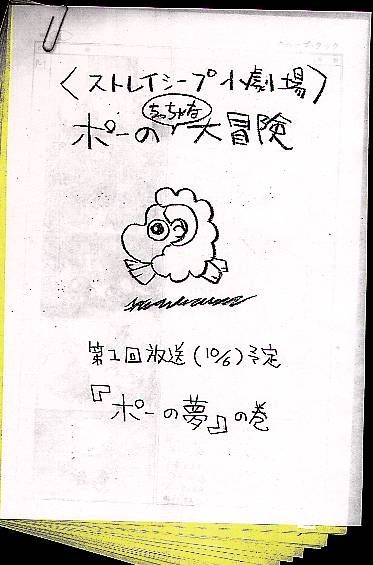 〈ストレイシープ小劇場〉
ポーのちっちゃな大冒険
第1回放送(10/6)予定
『ポーの夢』の巻